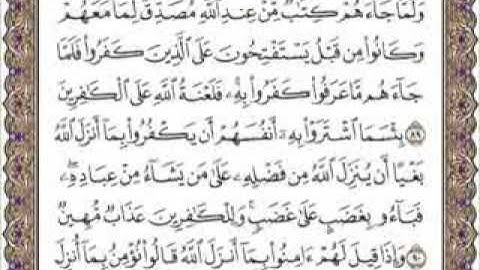 وَلَمَّا جَآءَهُمْ كِتَٰبٌ مِّنْ عِندِ ٱللَّهِ مُصَدِّقٌ لِّمَا مَعَهُمْ
وَكَانُوا۟ مِن قَبْلُ يَسْتَفْتِحُونَ عَلَى ٱلَّذِينَ كَفَرُوا۟ فَلَمَّا
جَآءَهُم مَّا عَرَفُوا۟ كَفَرُوا۟ بِهِۦ ۚ فَلَعْنَةُ ٱللَّهِ عَلَى ٱلْكَٰفِرِينَ
٨٩ بِئْسَمَا ٱشْتَرَوْا۟ بِهِۦٓ أَنفُسَهُمْ أَن يَكْفُرُوا۟ بِمَآ أَنزَلَ ٱللَّهُ
بَغْيًا أَن يُنَزِّلَ ٱللَّهُ مِن فَضْلِهِۦ عَلَىٰ مَن يَشَآءُ مِنْ عِبَادِهِۦ ۖ
فَبَآءُو بِغَضَبٍ عَلَىٰ غَضَبٍ ۚ وَلِلْكَٰفِرِينَ عَذَابٌ مُّهِينٌ
٩٠ وَإِذَا قِيلَ لَهُمْ ءَامِنُوا۟ بِمَآ أَنزَلَ ٱللَّهُ قَالُوا۟ نُؤْمِنُ بِمَآ أُنزِلَ